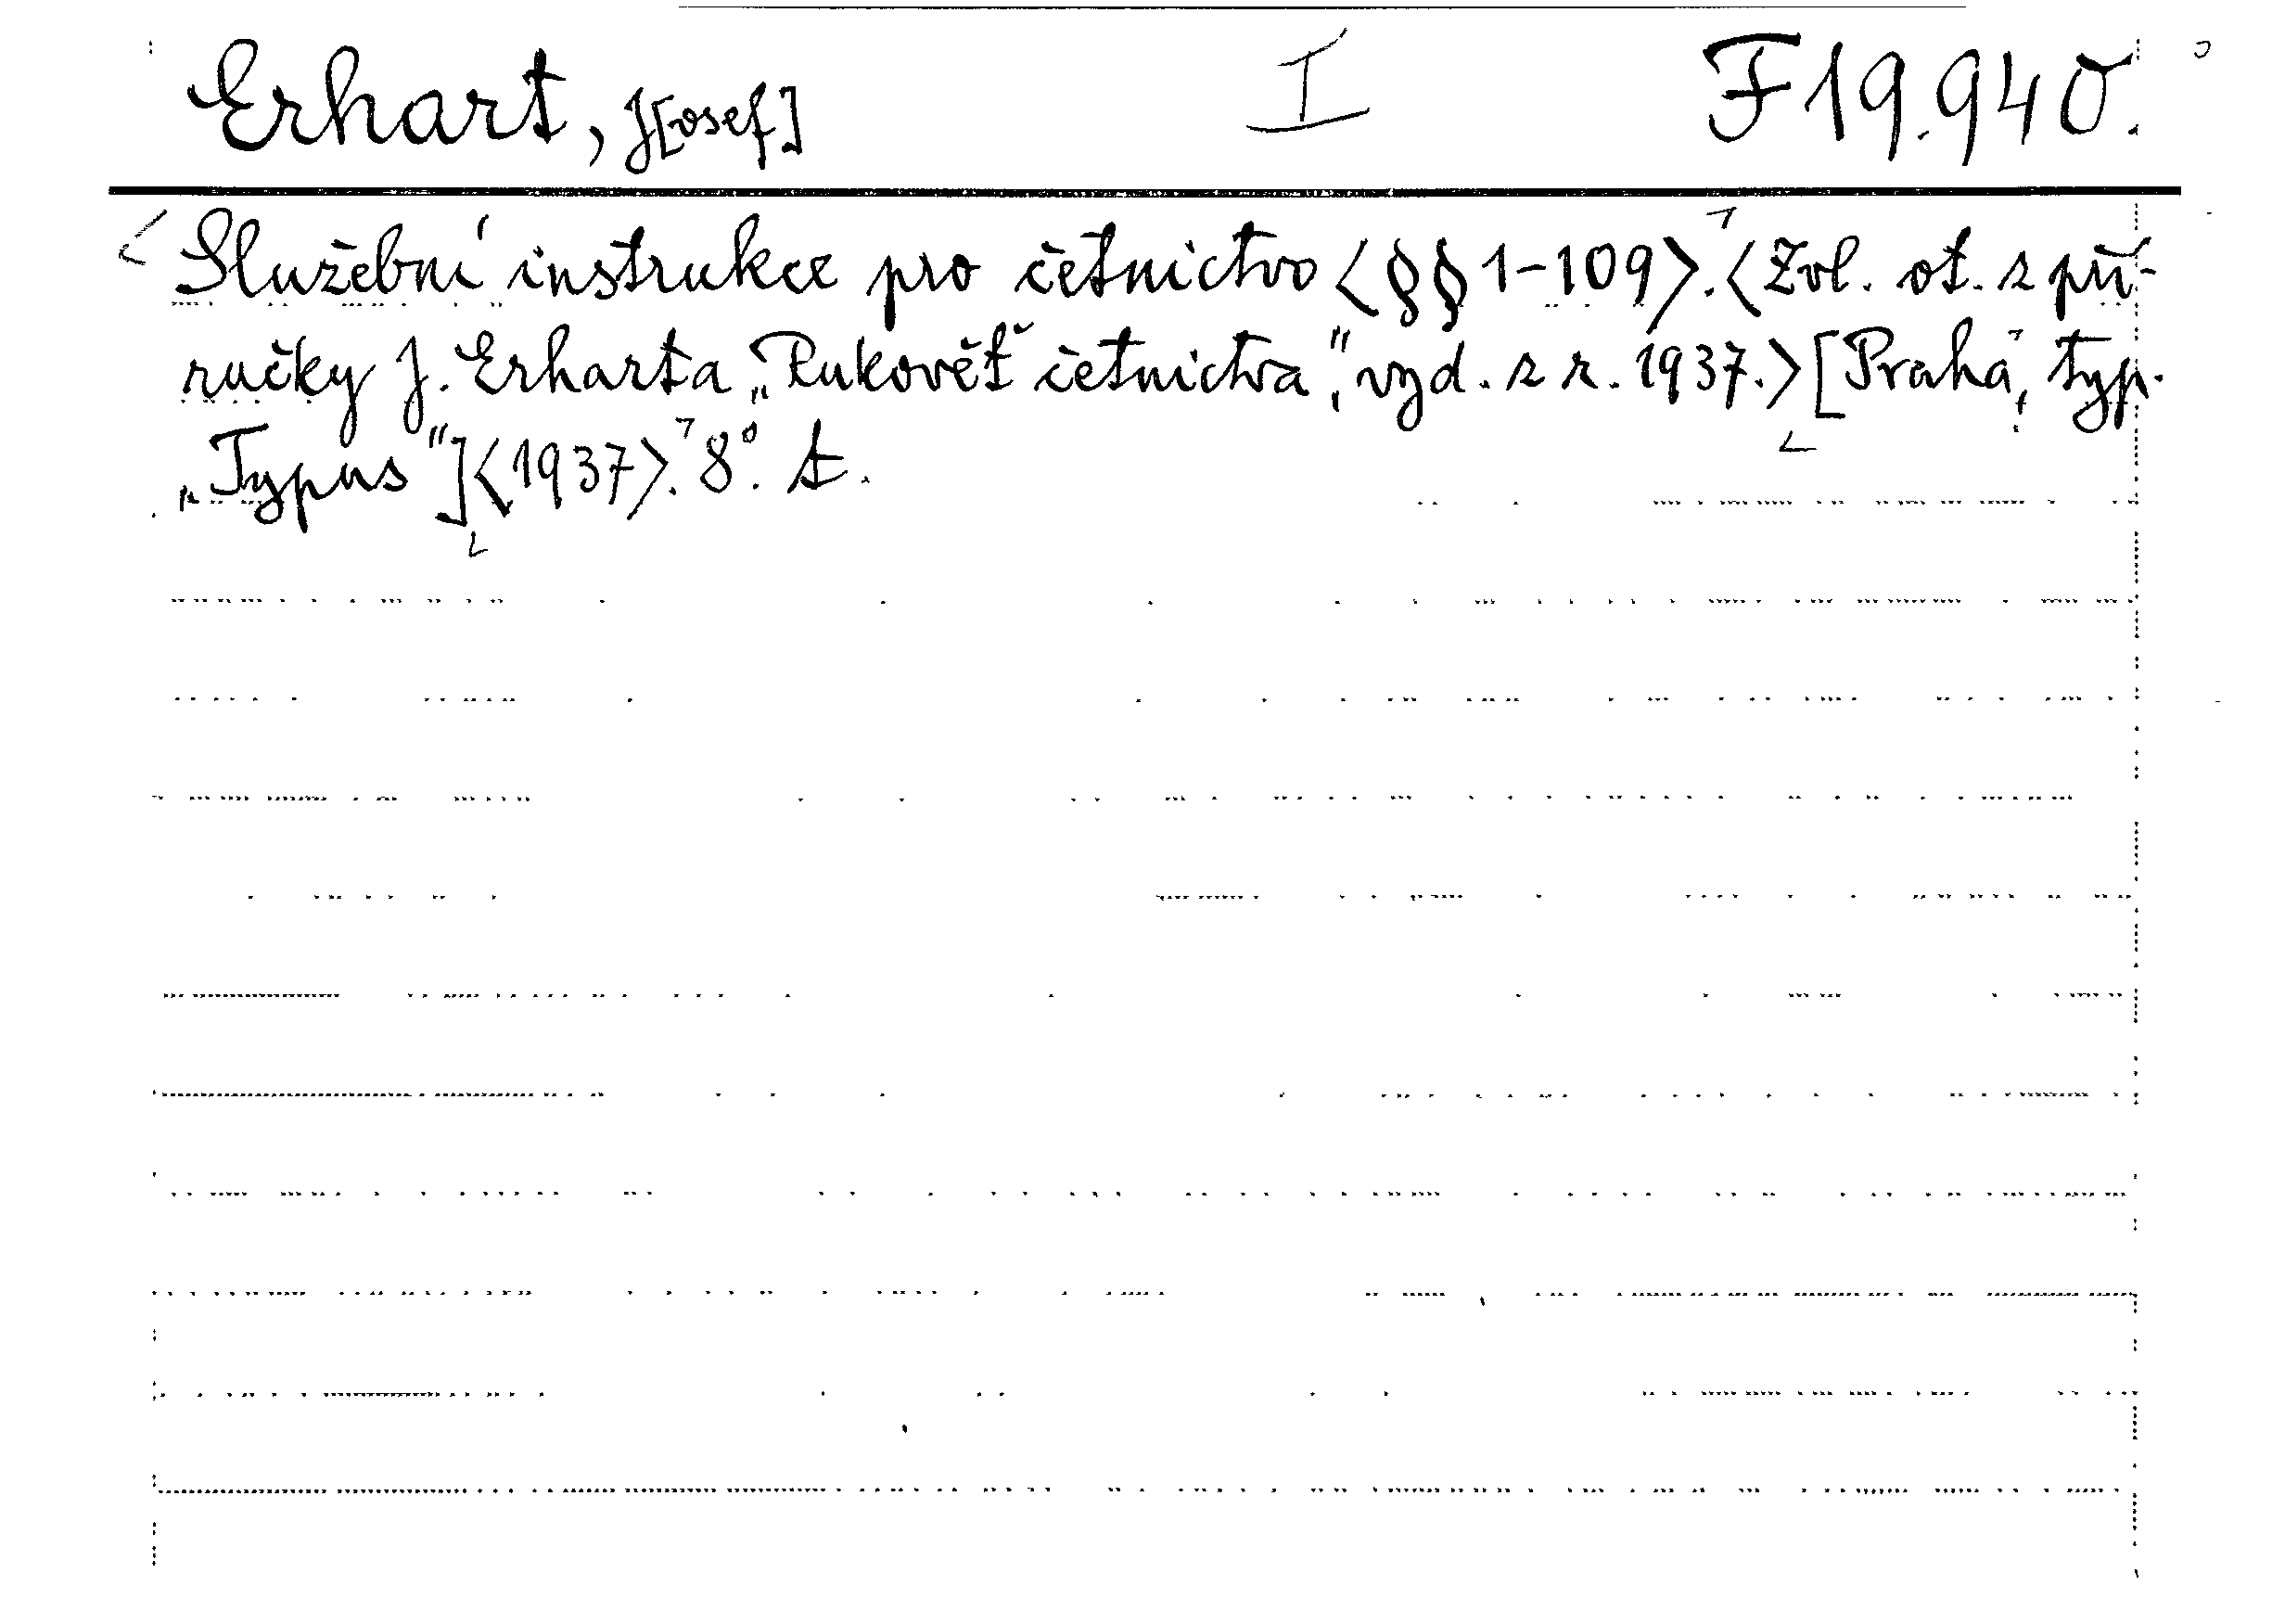 Erhart, J[osef] I F 19.940.
Služební instrukce pro četnictvo <§§ 1-109>. <Zvl. ot. z pří-
ručky J. Erharta „Rukověť četnictva", vyd. z r. 1937.> [Praha, typ.
„Typus"] <1937>. 8°. t.